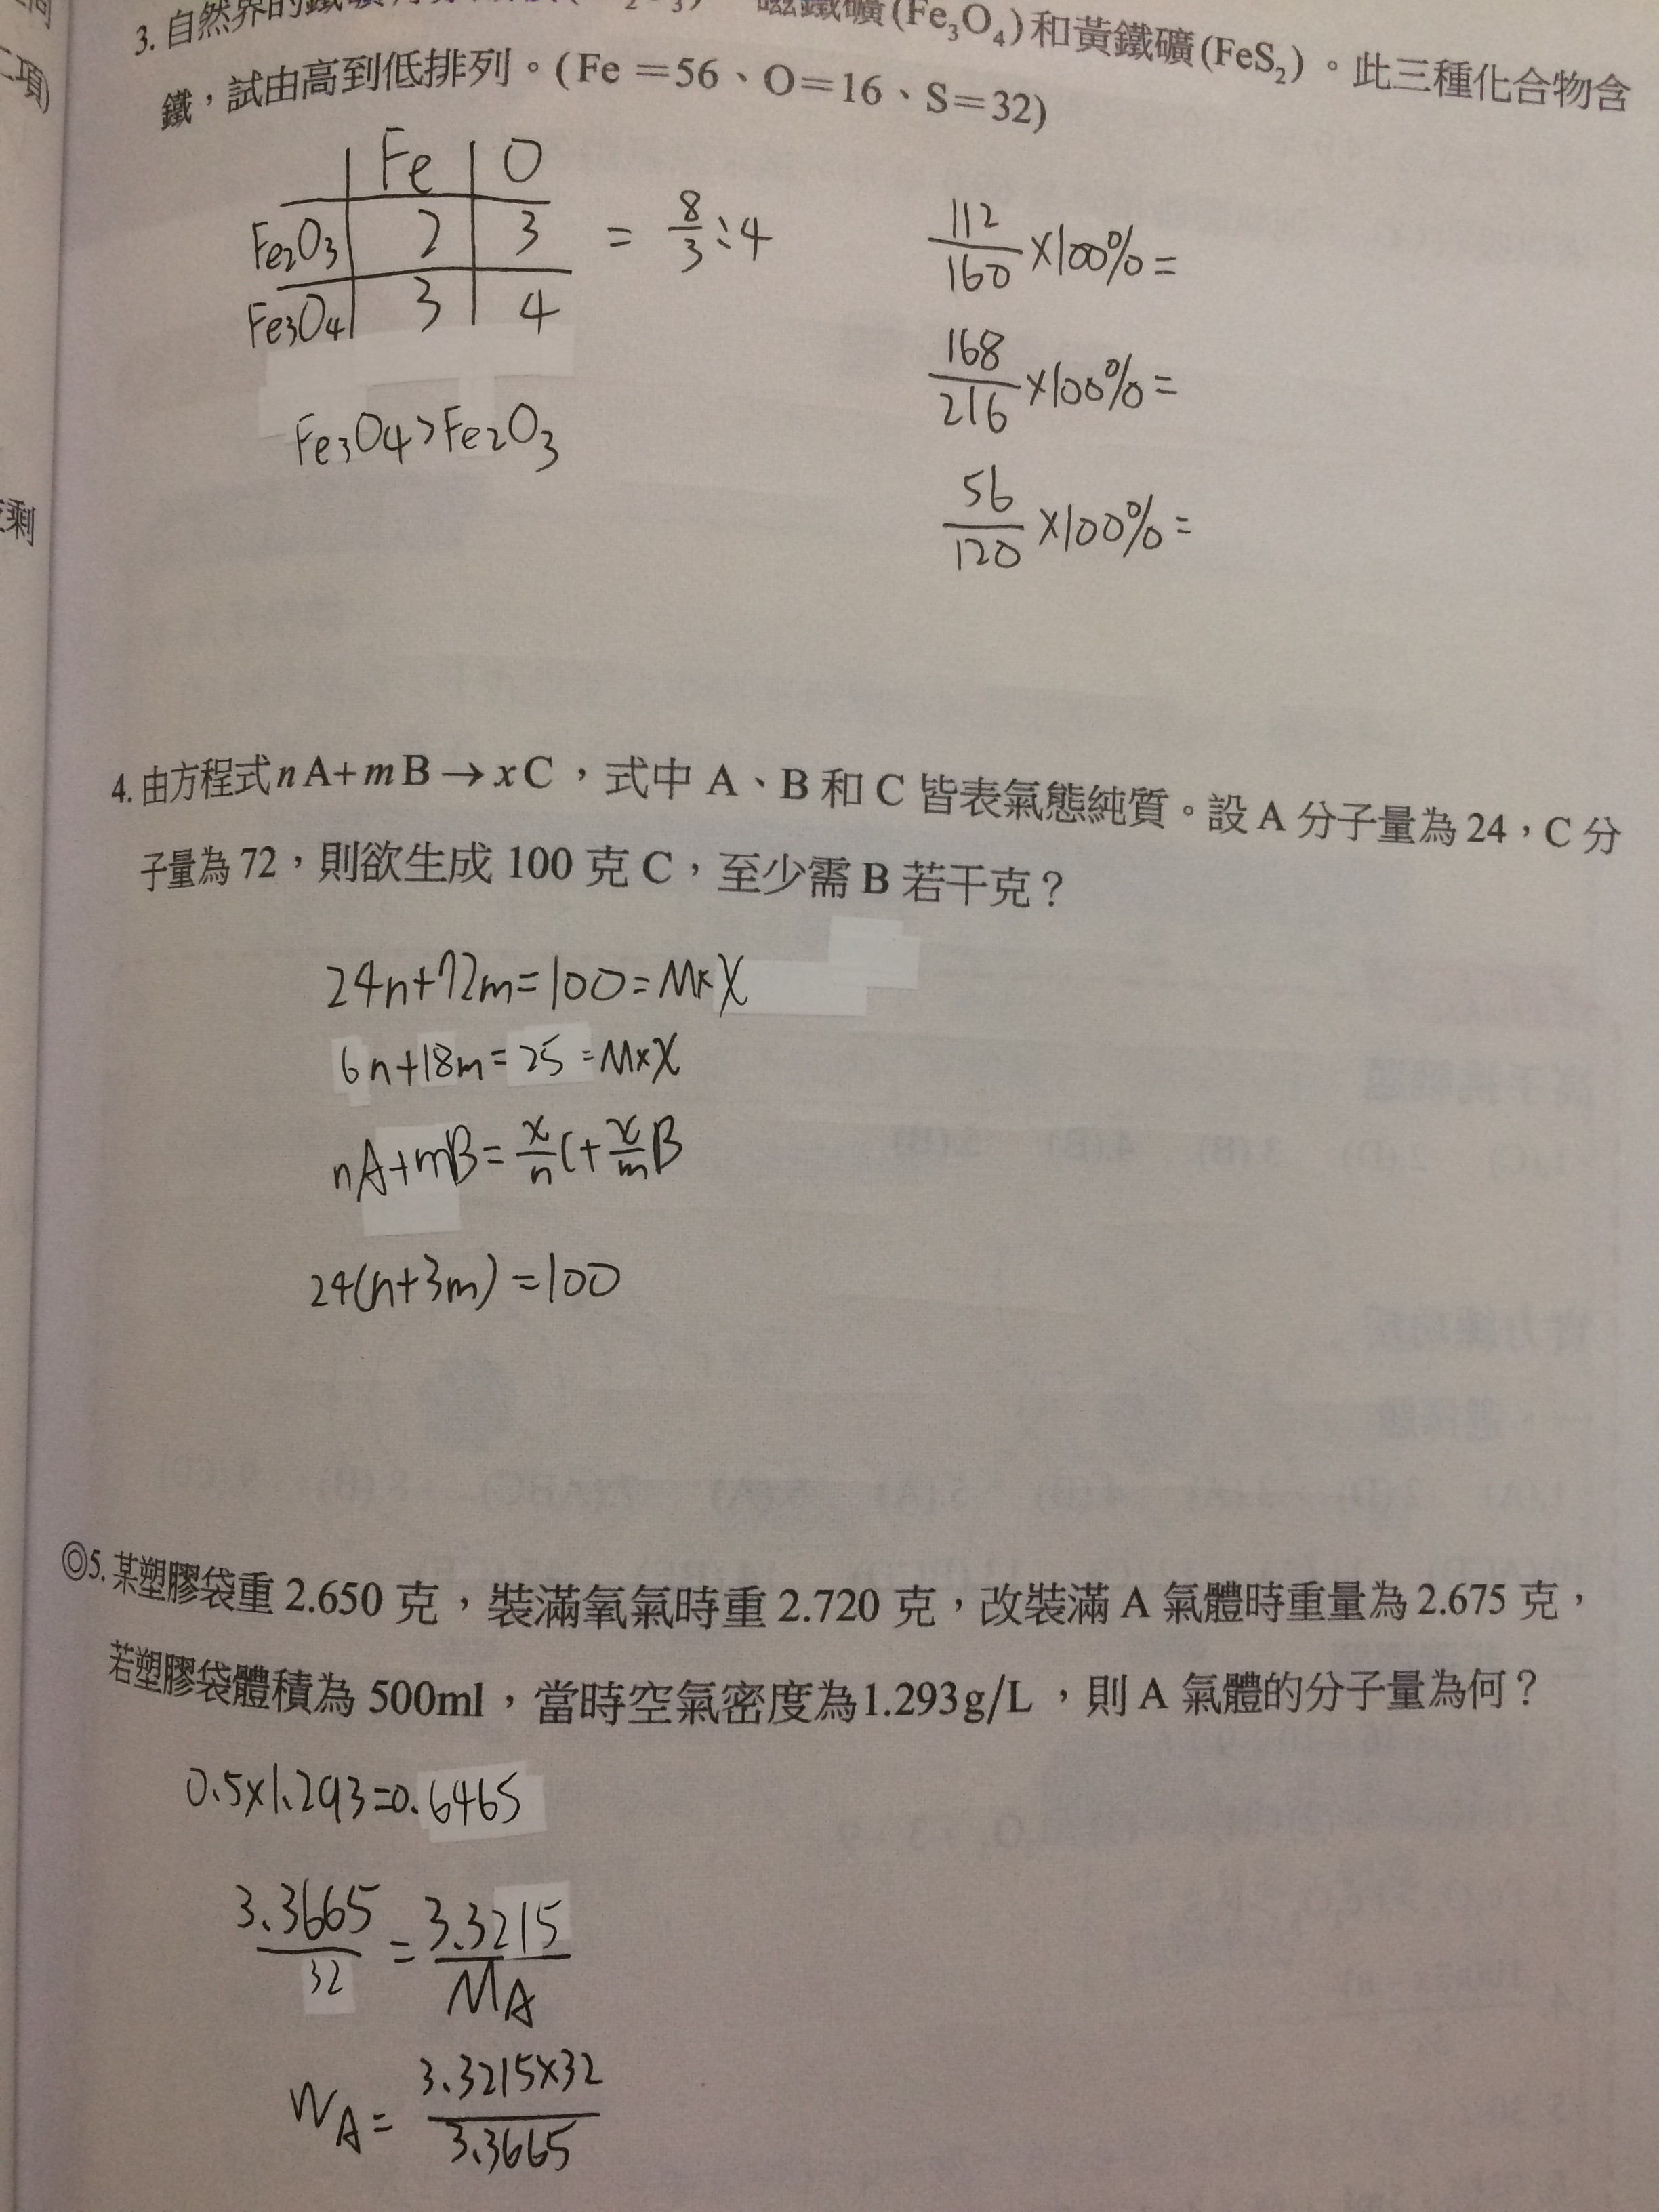 3. 自然界的鐵礦
磁鐵礦(Fe₃O₄)和黃鐵礦(FeS₂)。此三種化合物含
鐵,試由高到低排列。(Fe=56、O=16、S=32)
Fe O
Fe₂O₃ 2 3 = 8/3 : 4
Fe₃O₄ 3 4
Fe₃O₄>Fe₂O₃
112/160 ×100%=
168/216 ×100%=
56/120 ×100%=
項)
剩
4. 由方程式 nA+mB→xC,式中 A、B 和 C 皆表氣態純質。設 A 分子量為 24,C 分
子量為 72,則欲生成 100 克 C,至少需 B 若干克?
24n+72m=100=M×X
6n+18m=25=M×X
nA+mB=x/n C+x/m B
24(n+3m)=100
◎5. 某塑膠袋重 2.650 克,裝滿氧氣時重 2.720 克,改裝滿 A 氣體時重量為 2.675 克,
若塑膠袋體積為 500ml,當時空氣密度為1.293g/L,則 A 氣體的分子量為何?
0.5×1.293=0.6465
3.3665/32 = 3.3215/MA
WA= 3.3215×32/3.3665